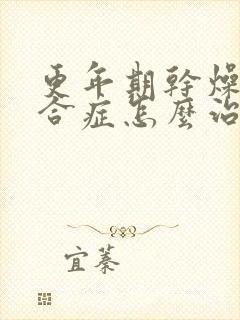 更年期幹燥
合症怎麼治
宜蓁